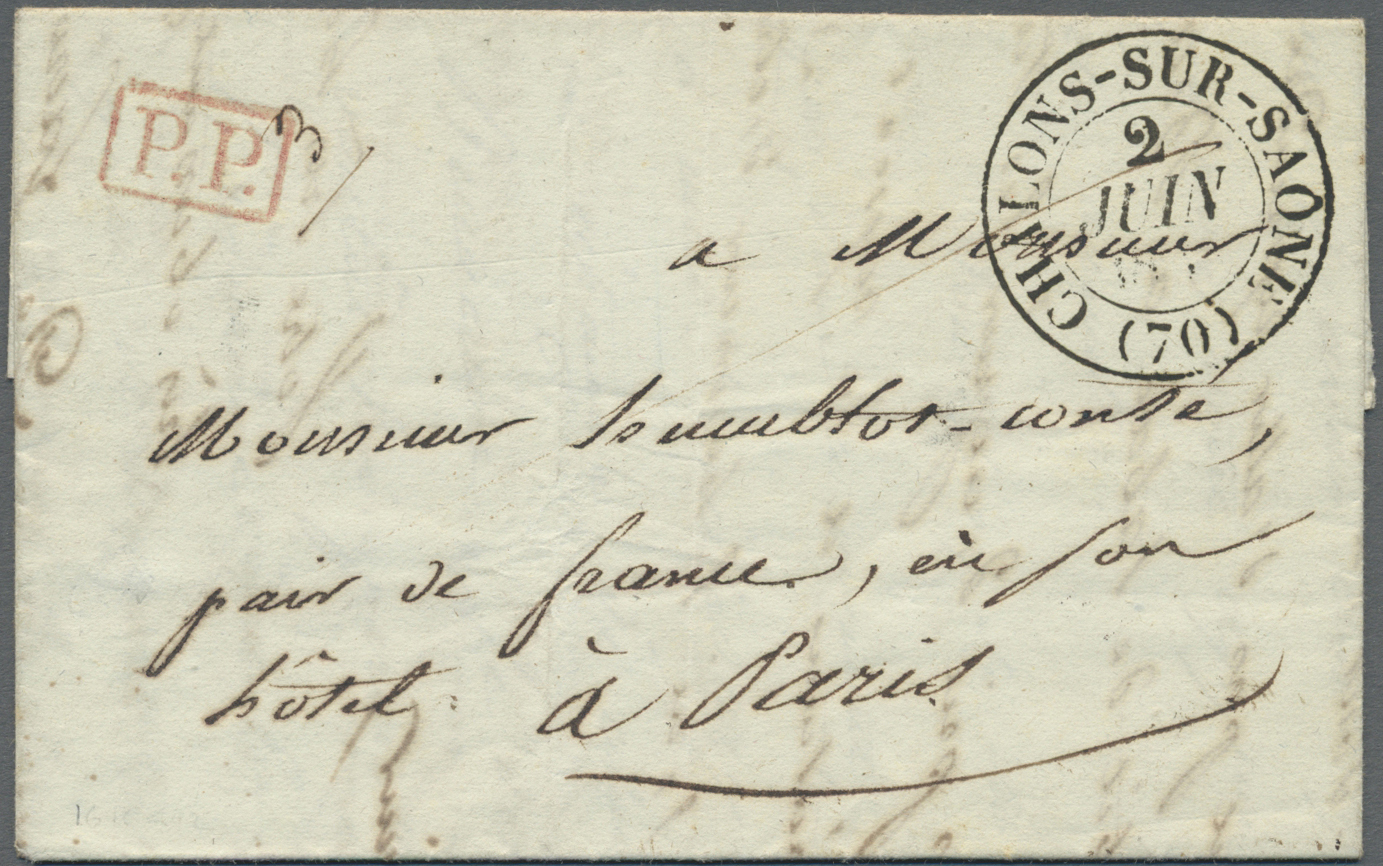 P.P.
3
CHALONS-SUR-SAÔNE (70)
2
JUIN
a Monsieur
Monsieur humblot-conte,
pair de france, en son
hôtel à Paris